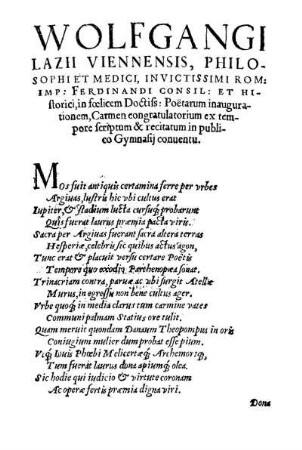 WOLFGANGI
LAZII VIENNENSIS, PHILO-
SOPHI ET MEDICI, INVICTISSIMI ROM:
IMP: FERDINANDI CONSIL: ET HI-
storici, in fœlicem Doctiss: Poëtarum inaugura-
tionem, Carmen congratulatorium ex tem-
pore scriptum & recitatum in publi-
co Gymnasij conuentu.
Mos fuit antiquis certamina ferre per vrbes
Argiuas, lustris hic vbi cultus erat
Iupiter, & stadium lucta cursuq́; probarunt
Quîs fuerat laurus præmia pacta viris.
Sacra per Argiuas fuerant sacra altera terras
Hesperiæ, celebris sic quibus actus agon,
Tunc erat & placuit versu certare Poëtis
Tempore quo exodia Parthenopæa sonat.
Trinacriam contra, paruæ ac vbi surgit Atellæ
Murus, in egressu non bene cultus ager.
Vrbe quoq́; in media clarus tum carmine vates
Communi palmam Statius ore tulit.
Quam meruit quondam Danaum Theopompus in oris
Coniugium mulier dum probat esse pium.
Vtq́; Iouis Phœbi Melicertæq́; Archemoriq́;,
Tum fuerat laurus dona apiumq́; olea.
Sic hodie qui iudicio & virtute coronam
Ac operæ fertis præmia digna viri.
Dona